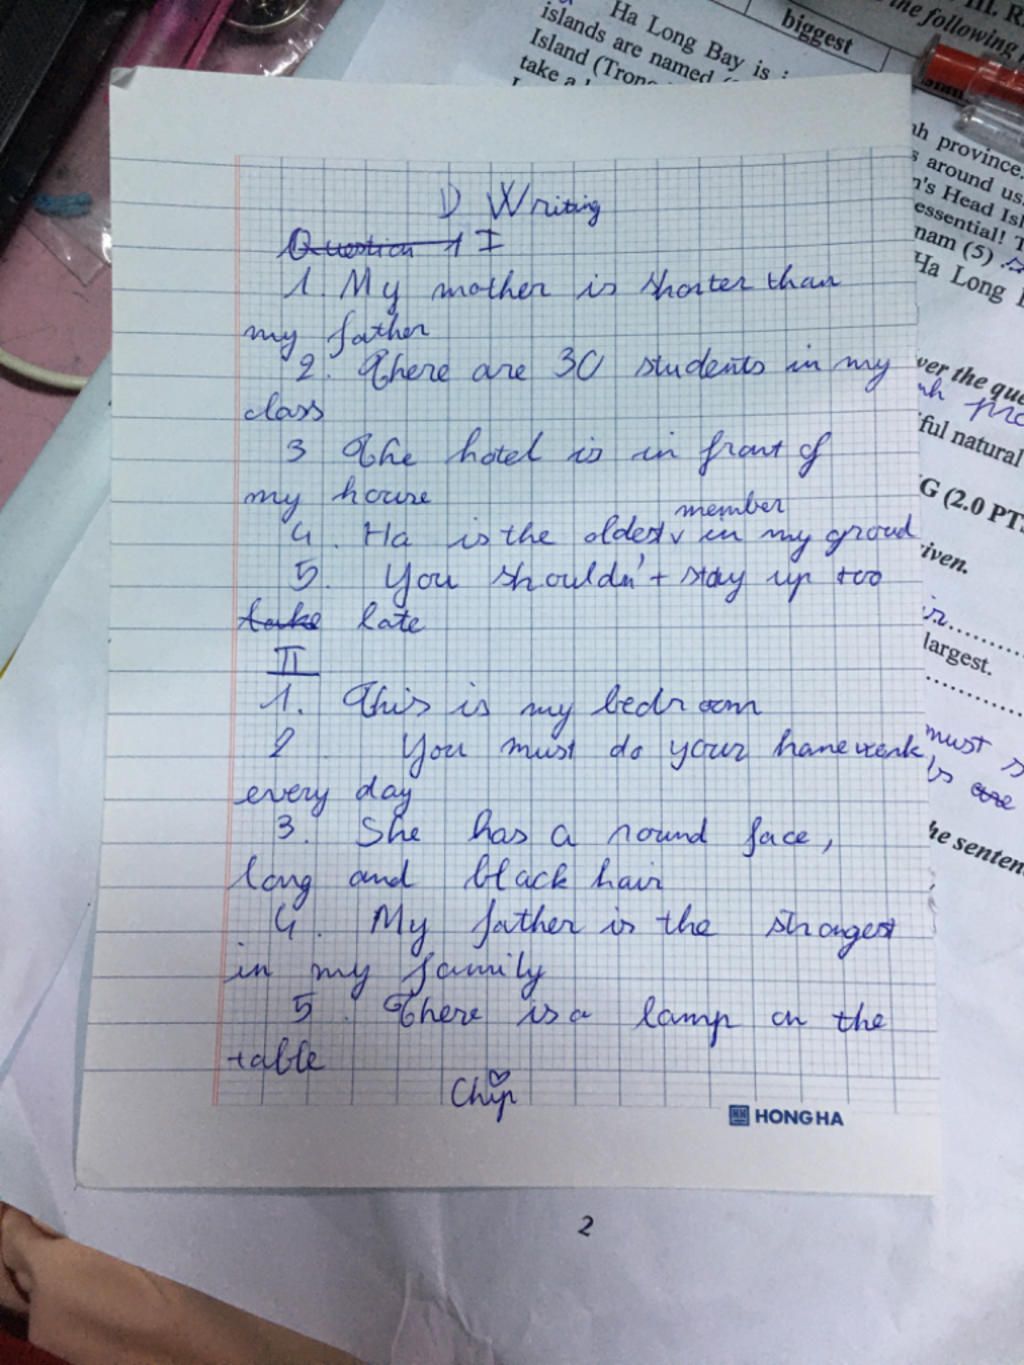 Ha Long Bay is
islands are named
Island (Trong
take a
biggest
III. R
the following
nh province.
s around us.
n's Head Isl
essential! T
nam (5)
Ha Long
D Writing
Question 1 I
1. My mother is shorter than
my father
2. There are 30 students in my
class
3 The hotel is in front of
my house
member
4. Ha is the oldest v in my groud
5. You shouldn't stay up too
take late
II
1. This is my bedroom
2 You must do your homework
every day
3. She has a round face,
long and black hair
4. My father is the strongest
in my family
5. There is a lamp on the
table
Chip
HONG HA
ver the que
ful natural
G (2.0 PT
iven.
largest.
must
are
he senten
2